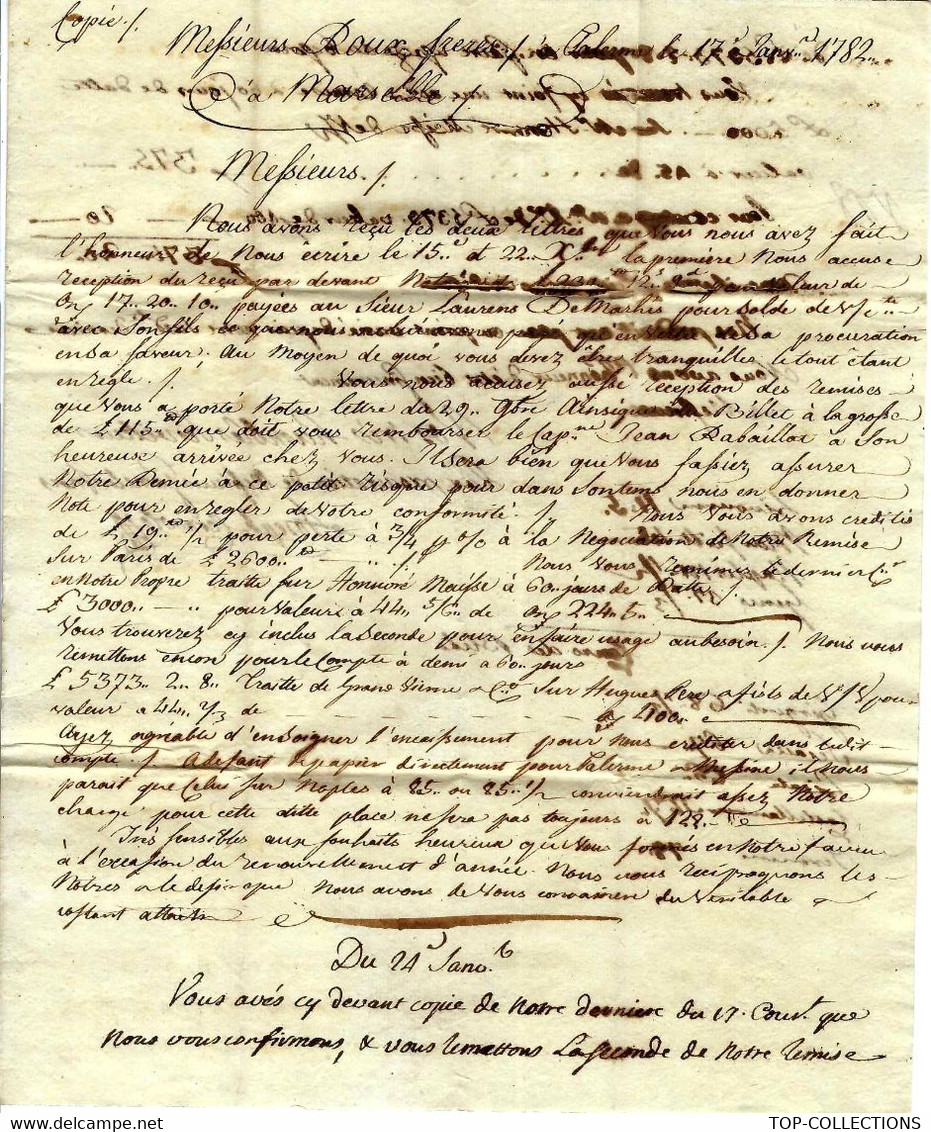 Copie ./.
Messieurs Roux freres ./. Palerme le 17.e Janv.r 1782..
à Marseille
Messieurs ./.
Nous avons reçu les deux lettres que Vous nous avez fait
l'honneur de Nous écrire le 15.. et 22.. Xbre la première Nous accuse
reception du reçu par devant valeur de
On 17.. 20.. 10.. payées au Sieur Laurens De Marhis pour solde de
avec Son fils sa procuration
en Sa faveur. Au Moyen de quoi vous devez être tranquilles, le tout étant
en règle. ./. Vous nous accusez aussi reception des remises
que Vous a porté Notre lettre du 29.. 9bre Ainsi que Billet à la grosse
de £ 115.. que doit vous rembourser le Cap.ne Jean Rabaillat à Son
heureuse arrivée chez Vous. Il sera bien que Vous fassiez assurer
Notre Demie à ce petit risque pour dans Son tems nous en donner
Note pour en regler de Votre conformité. ./. Nous Vous avons credité
de £ 19.. 1/2 pour perte à 3/4 p % à la Negociation de Notre Remise
Sur Paris de £ 2600.. ./. Nous Vous remimes le dernier
en Notre Propre traite sur Honnoré Maysse à 60.. jours de Datte ./.
£ 3000.. .. pour Valeurs à 44.. 5/6.. de On 224.. 5..
Vous trouverez cy inclus la Seconde pour en faire usage au besoin. ./. Nous vous
remettons encore pour le Compte à demi a 60.. jours
£ 5373.. 2.. 8.. Traitte de Sur Hugues Pere a fils de pour
valeur a 44.. 2/3 de On 400..
Ayez agréable d'en Soigner l'encaissement pour Nous crediter dans ledit
compte. ./. A defaut de papier directement pour Palerme Messine il Nous
parait que Celui sur Naples à 85.. ou 85.. 1/2 conviendrait assez Notre
change pour cette ditte place ne sera pas toujours à 122..
Très sensibles aux souhaits heureux que Vous formés en Notre faveur
à l'occasion du renouvellement d'année. Nous vous reciproquons les
Notres Nous avons de Vous convaincre du Veritable &
constant attach
Du 24.e Janv.r
Vous avés cy devant copie de notre derniere du 17. Cour.t que
Nous vous confirmons, & vous remettons La Seconde de Notre remise
TOP-COLLECTIONS